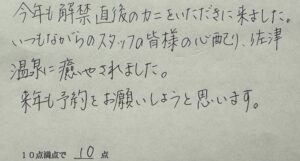 今年も解禁直後のカニをいただきに来ました。
いつもながらのスタッフの皆様の心配り、佐津
温泉に癒やされました。
来年も予約をお願いしようと思います。
10点満点で 10 点